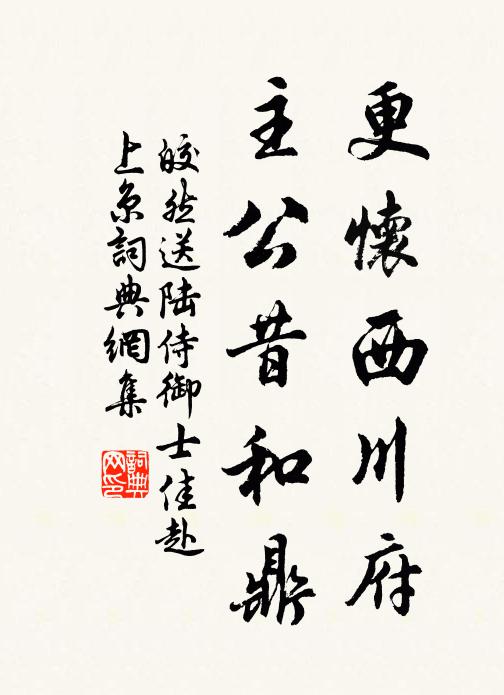 更懷西川府
主公昔和鼎
皎然送陆侍御士佳赴
上京詞典網集
詞典网印